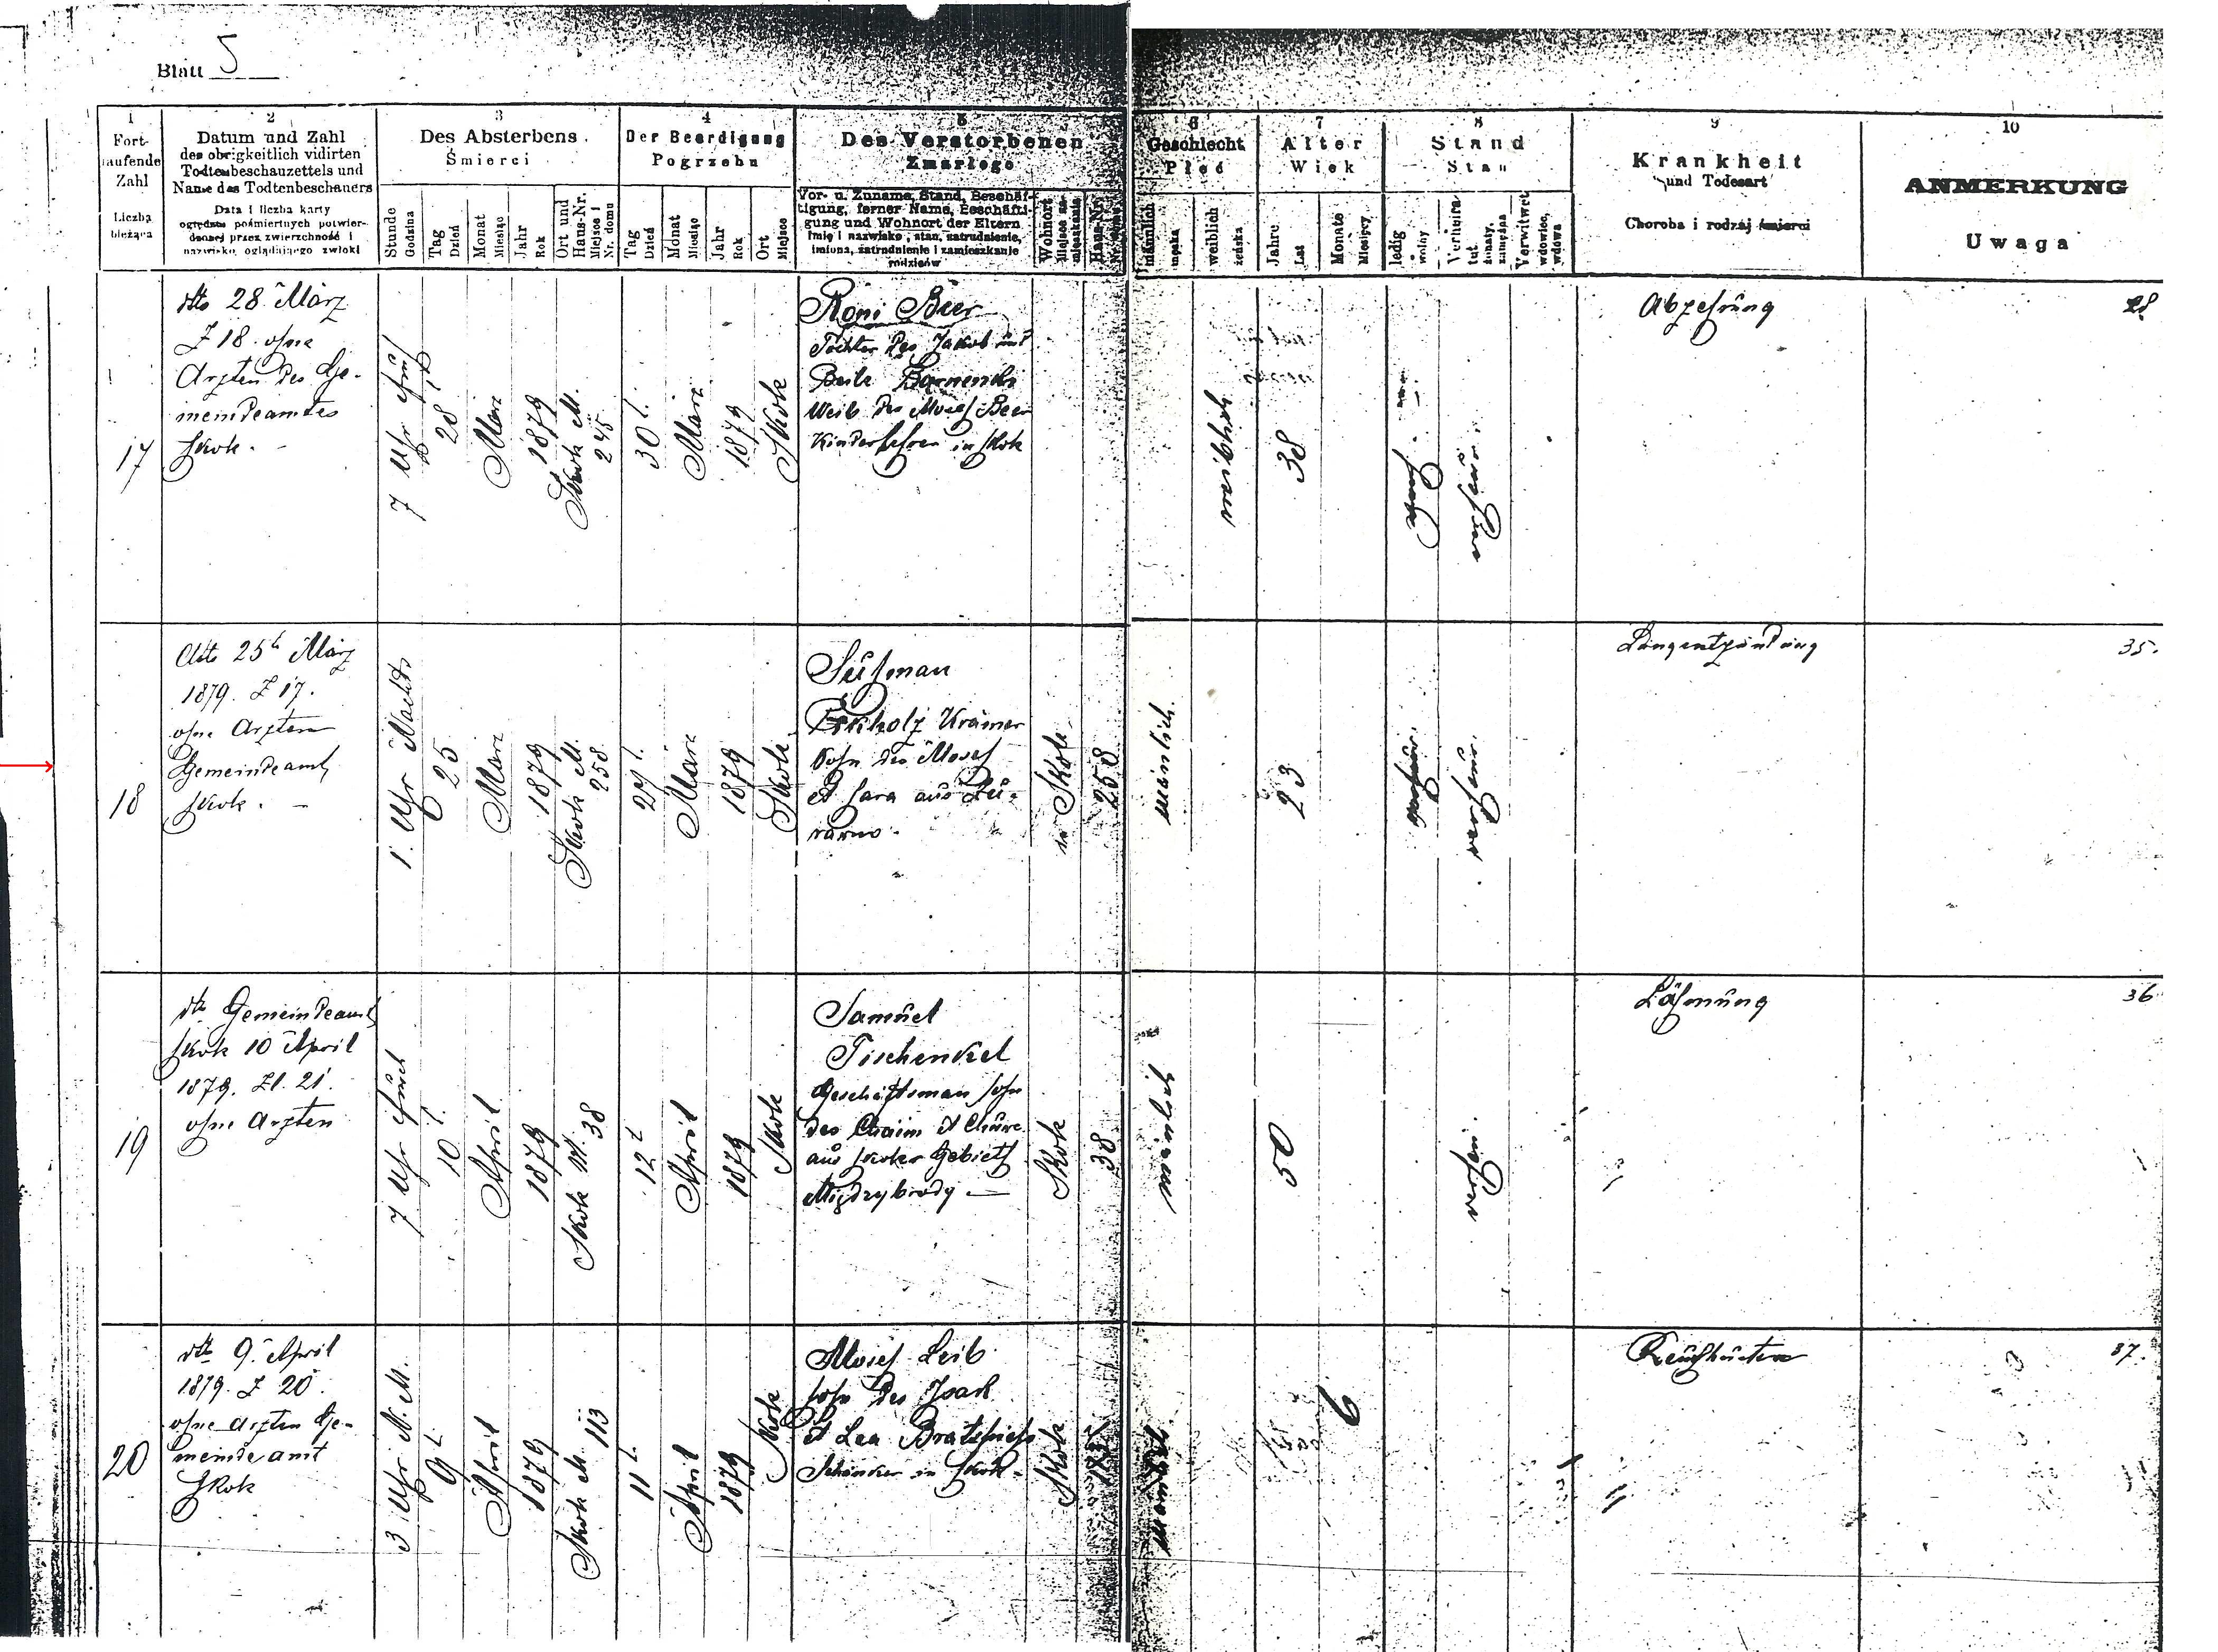 Blatt 5
1
Fort-
laufende
Zahl
Liczba
bieżąca
2
Datum und Zahl
des obrigkeitlich vidirten
Todtenbeschauzettels und
Name des Todtenbeschauers
Data i liczba karty
oględzin pośmiertnych potwier-
dzonej przez zwierzchność i
nazwisko oglądającego zwłoki
3
Des Absterbens
Śmierci
Stunde
Godzina
Tag
Dzień
Monat
Miesiąc
Jahr
Rok
Ort und
Haus-Nr.
Miejsce i
Nr. domu
4
Der Beerdigung
Pogrzebu
Tag
Dzień
Monat
Miesiąc
Jahr
Rok
Ort
Miejsce
5
Des Verstorbenen
Zmarłego
Vor- u. Zuname, Stand, Beschäf-
tigung, ferner Name, Beschäfti-
gung und Wohnort der Eltern
Imię i nazwisko, stan, zatrudnienie,
imiona, zatrudnienie i zamieszkanie
rodziców
Wohnort
Haus-Nr.
6
Geschlecht
Płeć
männlich
męska
weiblich
żeńska
7
Alter
Wiek
Jahre
Lat
Monate
Miesięcy
8
Stand
Stan
ledig
wolny
Verheira-
tet
żonaty,
zamężna
Verwitwet
wdowiec,
wdowa
9
Krankheit
und Todesart
Choroba i rodzaj śmierci
10
ANMERKUNG
Uwaga
17
dto 28. März
Z 18. ohne
Arzten des Ge-
meindeamtes
Skole. -
7 Uhr früh
28
März
1879
Skole M.
245
30 t.
März
1879
Skole
Roni Beer
Tochter des Jakob und
Beile
Weib des Moses Beer
Kinderlehrer in Skole
weiblich
38
Abzehrung
28
18
dto 25t März
1879. Z 17.
ohne Arzten
Gemeindeamt
Skole. -
1. Uhr Nachts
25
März
1879
Skole M.
258
27 t.
März
1879
Skole
Süßman
Krämer
Sohn des Moses
et Sara aus
in Skole
258
mänlich
23
Lungentzündung
35.
19
dto Gemeindeamt
Skole 10 April
1879. Zl. 21.
ohne Arzten
7 Uhr früh
10 t.
April
1879
Skole M. 38
12 t
April
1879
Skole
Samuel
Tischenkel
Geschäftsman Sohn
des Chaim et
aus Skoler Gebieth
Międzybrody -
Skole
38
mänlich
50
Lähmung
36
20
dto 9. April
1879. Z 20.
ohne Arzten Ge-
meinde amt
Skole
3 Uhr N. M.
9 t.
April
1879
Skole M. 113
11 t.
April
1879
Skole
Moses Leib
Sohn des Isak
et Lea
Schänker in Skole -
Skole
mänlich
6
Keuchhusten
37.